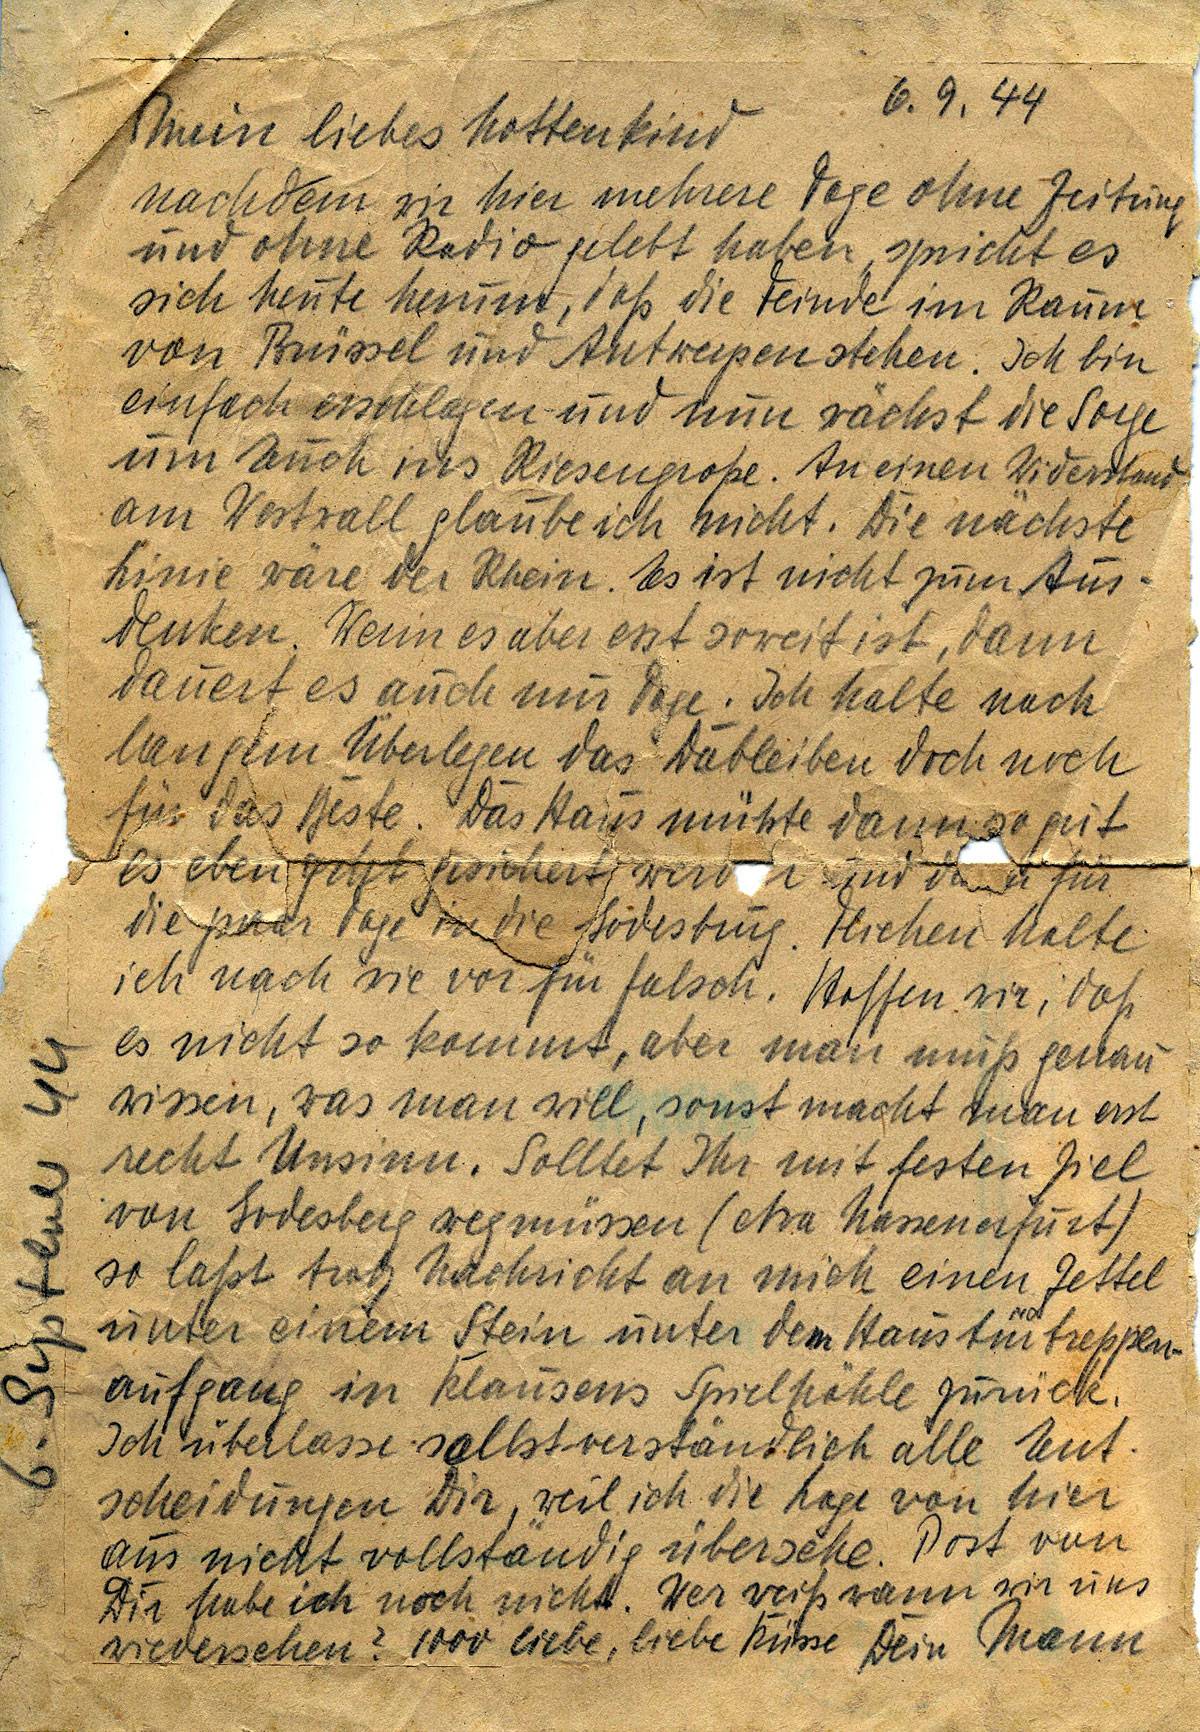 6. 9. 44
Mein liebes Lottenkind
nachdem wir hier mehrere Tage ohne Zeitung
und ohne Radio gelebt haben, spricht es
sich heute herum, daß die Feinde im Raum
von Brüssel und Antwerpen stehen. Ich bin
einfach erschlagen und nun wächst die Sorge
um Euch ins Riesengroße. An einen Widerstand
am Westwall glaube ich nicht. Die nächste
Linie wäre der Rhein. Es ist nicht zum Aus-
denken. Wenn es aber erst soweit ist, dann
dauert es auch nur Tage. Ich halte nach
langem Überlegen das Dableiben doch noch
für das Beste. Das Haus müßte dann so gut
es eben geht gesichert werden und dann für
die paar Tage in die Godesburg. Fliehen halte
ich nach wie vor für falsch. Hoffen wir, daß
es nicht so kommt, aber man muß genau
wissen, was man will, sonst macht man erst
recht Unsinn. Solltet Ihr mit festen Ziel
von Godesberg wegmüssen (etwa Wassenerfurt)
so laßt trotz Nachricht an mich einen Zettel
unter einem Stein unter dem Haustürtreppen-
aufgang in Klausens Spielhöhle zurück.
Ich überlasse selbstverständlich alle Ent-
scheidungen Dir, weil ich die Lage von hier
aus nicht vollständig übersehe. Post von
Dir habe ich noch nicht. Wer weiß wann wir uns
wiedersehen? 1000 liebe, liebe Küsse Dein Mann
6. September 44